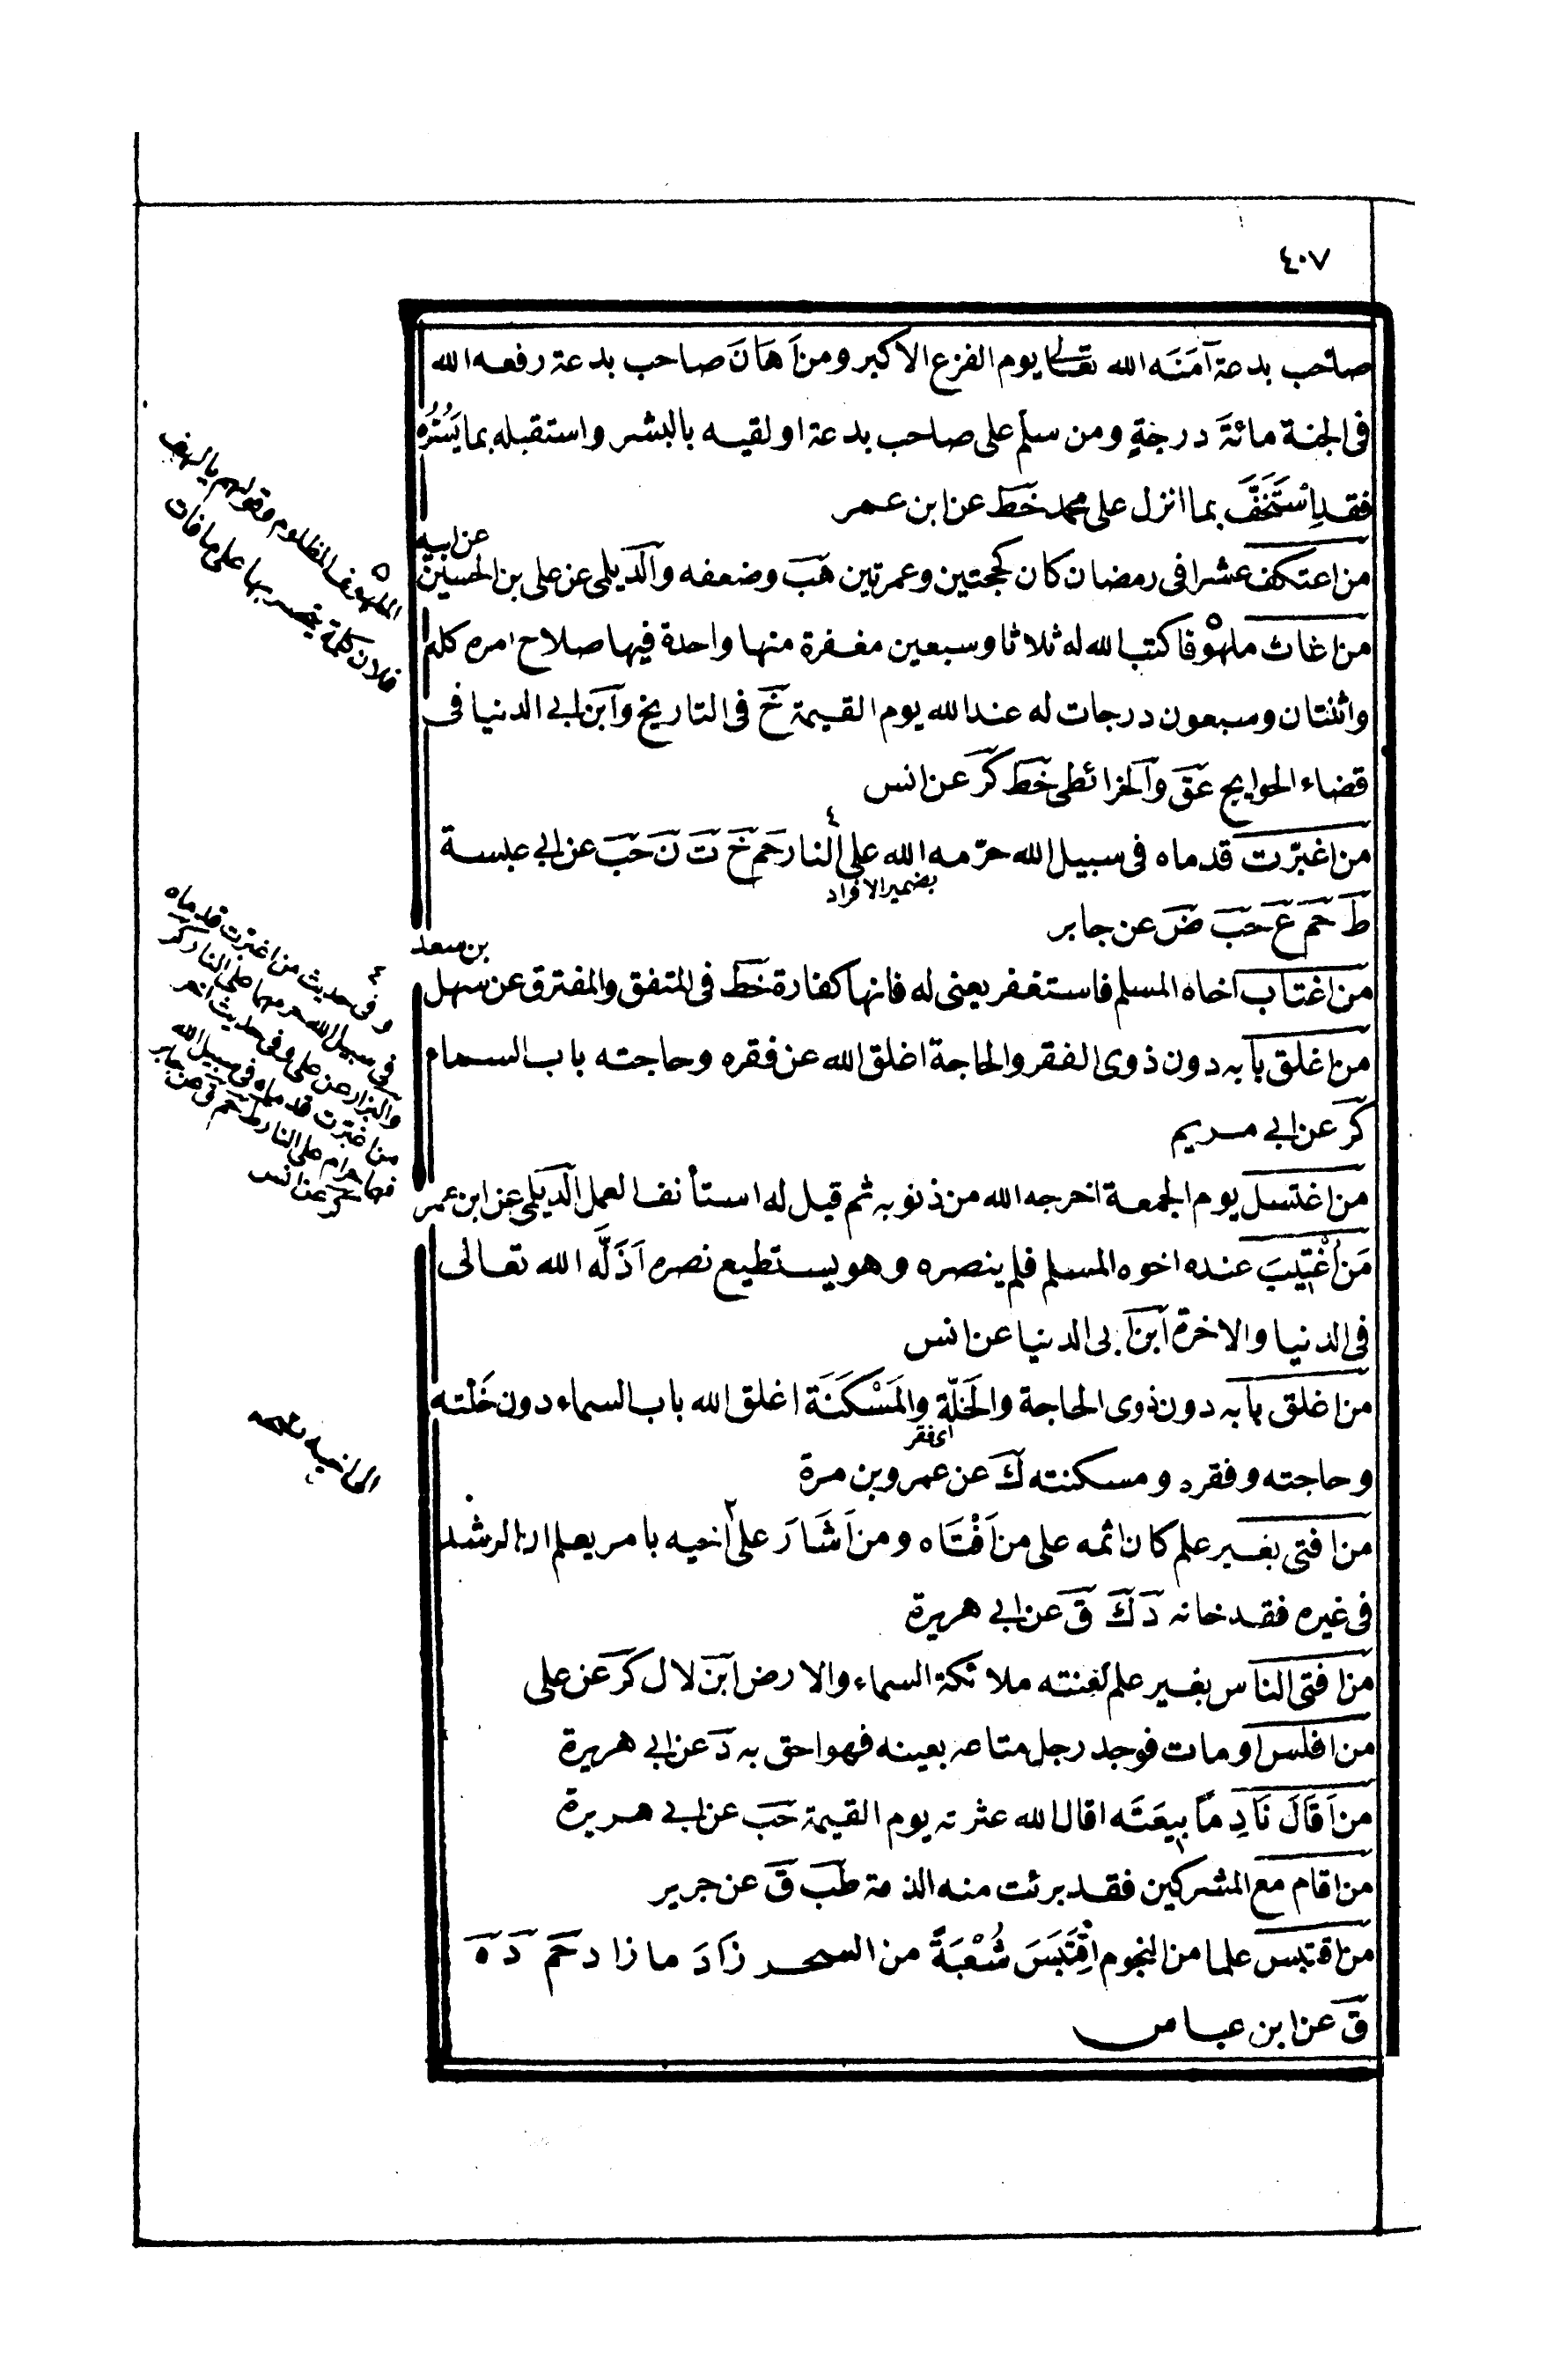 ٤٠٧
صاحب بدعة آمَنَه الله تعالى يوم الفزع الاكبر ومن اَهَانَ صاحب بدعة رفعه الله
فى الجنة مائةَ درجةٍ ومن سلم على صاحب بدعة او لقيه بالبشر واستقبله بما يَسُرُّه
فقد اِسْتَخَفَّ بما انزل على محمد خط عن ابن عمر
من اعتكف عشرا فى رمضان كان كحجتين وعمرتين هب وضعفه والديلى عن على بن الحسين
عن ابيه
من اغاث ملهوفا كتب الله له ثلاثا وسبعين مغفرة منها واحدة فيها صلاح امره كله
واثنتان وسبعون درجات له عند الله يوم القيمة خ فى التاريخ وابن ابى الدنيا فى
قضاء الحوايج عق والخرائطى خط كر عن انس
من اغبرّت قدماه فى سبيل الله حرّمه الله على النار حم خ ت ن حب عن ابى عبسة
بضمير الافراد
ط حم ع حب ض عن جابر
من اغتاب اخاه المسلم فاستغفر يعنى له فانها كفارة خط فى المتفق والمفترق عن سهل
بن سعد
من اغلق بابه دون ذوى الفقر والحاجة اغلق الله عن فقره وحاجته باب السماء
كر عن ابى مريم
من اغتسل يوم الجمعة اخرجه الله من ذنوبه ثم قيل له استأنف العمل الديلى عن ابن عمر
مَن اُغْتِيبَ عنده اخوه المسلم فلم ينصره وهو يستطيع نصره اَذَلَّه الله تعالى
فى الدنيا والاخرة ابن ابى الدنيا عن انس
من اغلق بابه دون ذوى الحاجة والخَلّة والمَسْكَنَة اغلق الله باب السماء دون خَلَّته
اى فقر
وحاجته وفقره ومسكنته ك عن عمرو بن مرة
من افتى بغير علم كان اثمه على من اَفْتَاه ومن اَشَارَ على اخيه بامر يعلم ان الرشد
فى غيره فقد خانه د ك ق عن ابى هريرة
من افتى الناس بغير علم لعنته ملائكة السماء والارض ابن لال كر عن على
من افلس او مات فوجد رجل متاعه بعينه فهو احق به د عن ابى هريرة
من اَقَالَ نَادِمًا بِيعَتَه اقال الله عثرته يوم القيمة حب عن ابى هريرة
من اقام مع المشركين فقد برئت منه الذمة طب ق عن جرير
من اقتبس علما من النجوم اقْتَبَسَ شُعْبَةً من السحر زَادَ ما زاد حم د ه
ق عن ابن عباس
الملهوف المظلوم وقولهم يا لهف
فلان كلمة يتحسر بها على ما فات
وفى حديث من اغبرت قدماه
فى سبيل الله حرمهما على النار كر
والبزار عن على وفى حديث اخر
من اغبرت قدماه فى سبيل الله
فهما حرام على النار ط حم ق عن جابر
كر عن انس